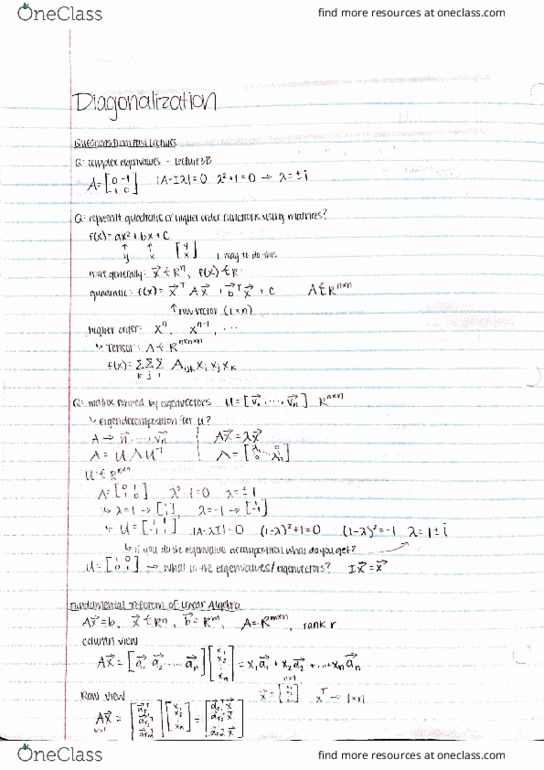 OneClass
find more resources at oneclass.com
Diagonalization
Questions from Past Lectures
Q: complex eigenvalues - Lecture 3B
A = [0 -1; 1 0] |A-Iλ|=0 λ²+1=0 → λ=±i
Q: represent quadratic or higher order functions using matrices?
f(x)=ax²+bx+c
↑ ↑ [y; x]
y x 1 way to do this
more generally: x⃗ ∈ Rⁿ, f(x) ∈ R
quadratic: f(x) = x⃗ᵀ A x⃗ + b⃗ᵀ x⃗ + c A ∈ Rⁿˣⁿ
↑ row vector (1×n)
higher order: xⁿ, xⁿ⁻¹, ...
↳ Tensor: A ∈ Rⁿˣⁿˣⁿ
f(x) = Σ Σ Σ Aᵢⱼₖ xᵢ xⱼ xₖ
k j i
Q: matrix formed by eigenvectors U = [v⃗₁ ... v⃗ₙ] Rⁿˣⁿ
↳ eigendecomposition for U?
A → v⃗₁ ... v⃗ₙ Ax⃗ = λx⃗
A = U Λ U⁻¹ Λ = [λ₁ 0; 0 λₙ]
U ∈ Rⁿˣⁿ
A = [0 1; 1 0] λ²-1=0 λ=±1
↳ λ=1 → [1; 1] λ=-1 → [1; -1]
↳ U = |A-λI|=0 (1-λ)²+1=0 (1-λ)²=-1 λ=1±i
↳ if you do the eigenvalue decomposition what do you get?
U = [1 0; 0 1] → what is the eigenvalues/eigenvectors? Ix⃗=x⃗
Fundamental Theorem of Linear Algebra
Ax⃗=b, x⃗ ∈ Rⁿ, b⃗ = Rᵐ, A = Rᵐˣⁿ, rank r
column view
Ax⃗ = [a⃗₁ a⃗₂ ... a⃗ₙ] [x₁; x₂; ⋮; xₙ] = x₁a⃗₁ + x₂a⃗₂ + ... + xₙa⃗ₙ
n×1
x⃗ = xᵀ → 1×n
Row view
Ax⃗ =
OneClass
find more resources at oneclass.com